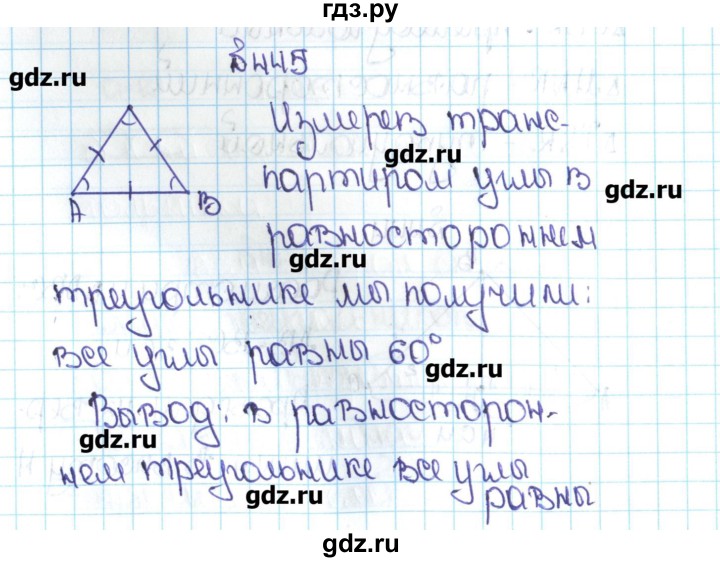 гдз.ру
В445
gdz.ru
Измерев транс-
gdz.ru
партиром углы в
gdz.ru
А В
равностороннем
gdz.ru
треугольнике мы получили:
все углы равны 60°
gdz.ru
Вывод: в равносторон-
gdz.ru
нем треугольнике все углы
равны
gdz.ru
gdz.ru